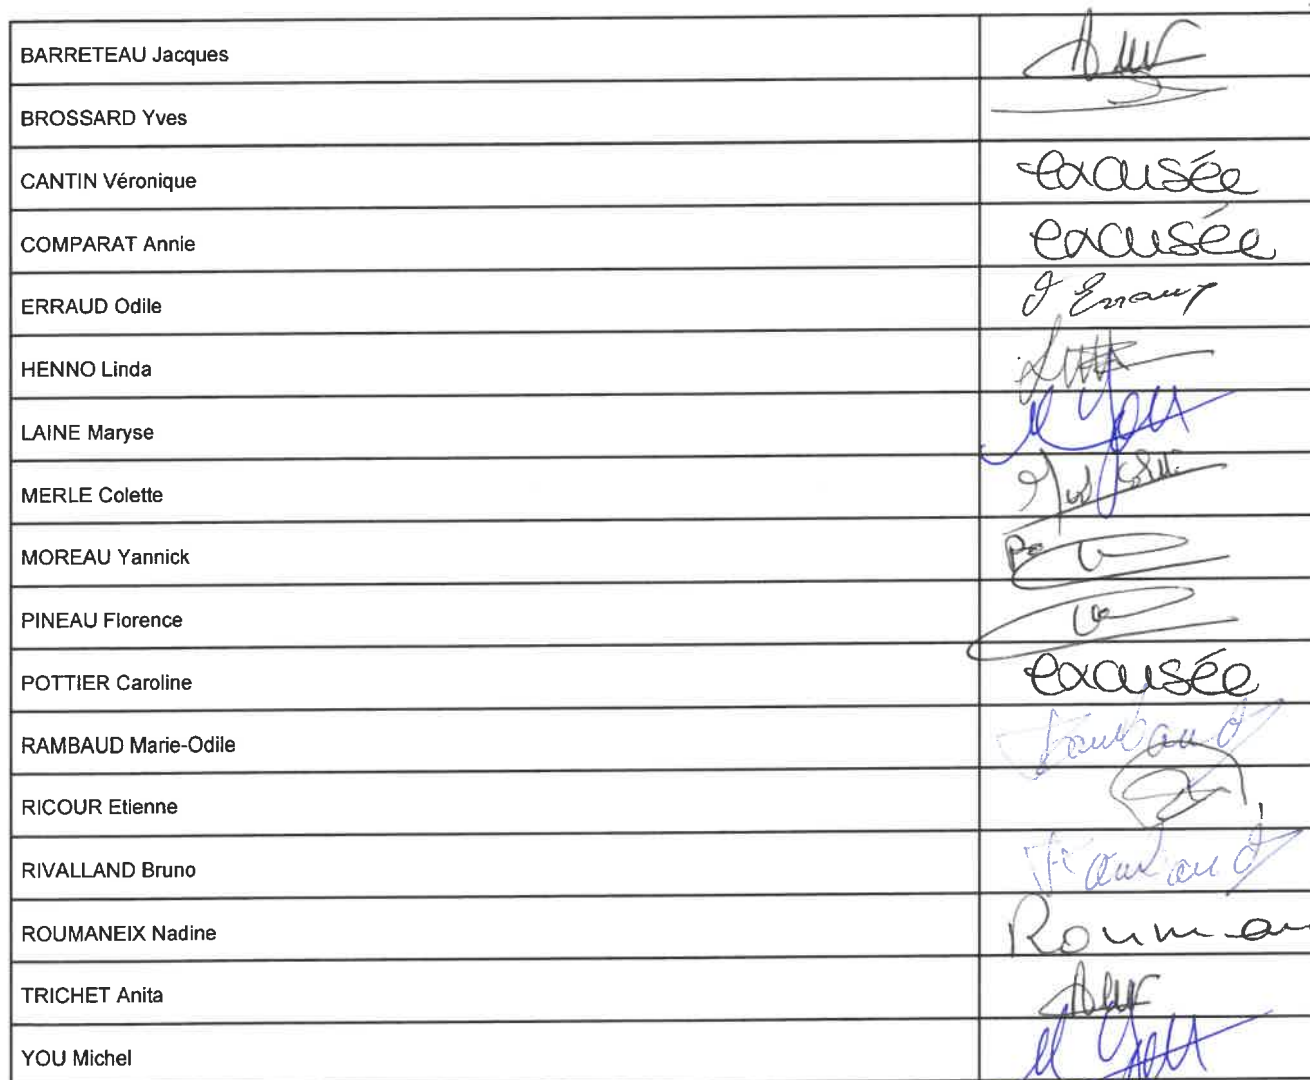 BARRETEAU Jacques
BROSSARD Yves
CANTIN Véronique excusée
COMPARAT Annie excusée
ERRAUD Odile
HENNO Linda
LAINE Maryse
MERLE Colette
MOREAU Yannick
PINEAU Florence
POTTIER Caroline excusée
RAMBAUD Marie-Odile Rambaud
RICOUR Etienne
RIVALLAND Bruno Rambaud
ROUMANEIX Nadine
TRICHET Anita
YOU Michel